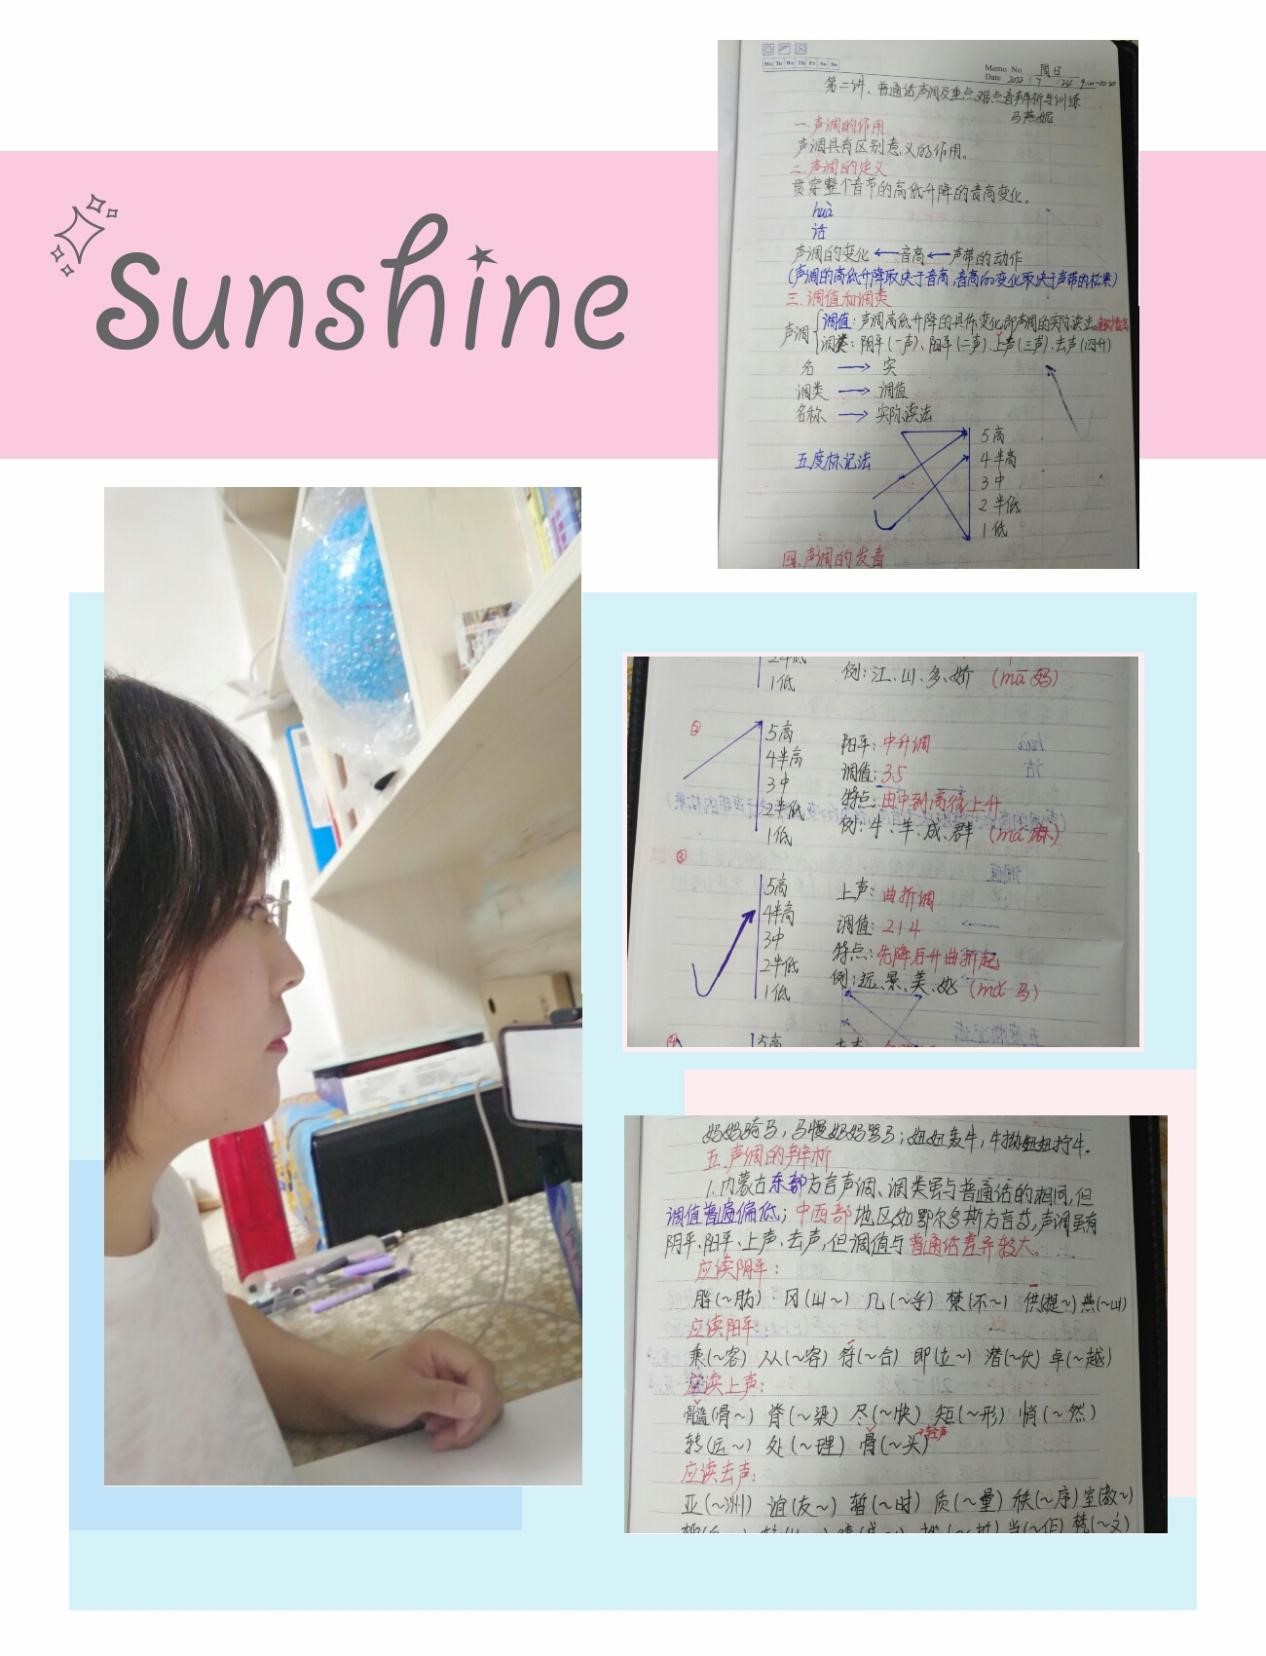 Sunshine
Memo No. 周日
Date 2022 17
第二讲、普通话声调及重点难点音辨析与训练
马燕妮
一.声调的作用
声调具有区别意义的作用。
二.声调的定义
贯穿整个音节的高低升降的音高变化。
huà
话
声调的变化 ← 音高 ← 声带的动作
(声调的高低升降取决于音高,音高的变化取决于声带的松紧)
三.调值和调类
声调
调值:声调高低升降的具体变化,即声调的实际读法。
调类:阴平(一声)、阳平(二声)、上声(三声)、去声(四声)
名 → 实
调类 → 调值
名称 → 实际读法
五度标记法
5高
4半高
3中
2半低
1低
四.声调的发音
2半低
1低
例:江、山、多、娇 (mā 妈)
②
5高
4半高
3中
2半低
1低
阳平:中升调
调值:35
特点:由中到高往上升
例:牛、羊、成、群 (má 麻)
③
5高
4半高
3中
2半低
1低
上声:曲折调
调值:214
特点:先降后升曲折起
例:远、景、美、好 (mǎ 马)
5高
妈妈骑马,马慢妈妈骂马;妞妞轰牛,牛拗妞妞拧牛。
五.声调的辨析
1.内蒙古东部方言声调、调类虽与普通话的相同,但
调值普遍偏低;中西部地区如鄂尔多斯方言等,声调虽有
阴平、阳平、上声、去声,但调值与普通话差异较大。
应读阴平:
脂(~肪) 冈(山~) 几(~乎) 禁(不~) 供(提~) 燕(~山)
应读阳平:
乘(~客) 从(~容) 符(~合) 即(立~) 潜(~伏) 卓(~越)
应读上声:
髓(骨~) 脊(~梁) 尽(~快) 矩(~形) 悄(~然)
转(运~) 处(~理) 骨(~头) 轻声
应读去声:
亚(~洲) 谊(友~) 暂(~时) 质(~量) 秩(~序) 室(教~)